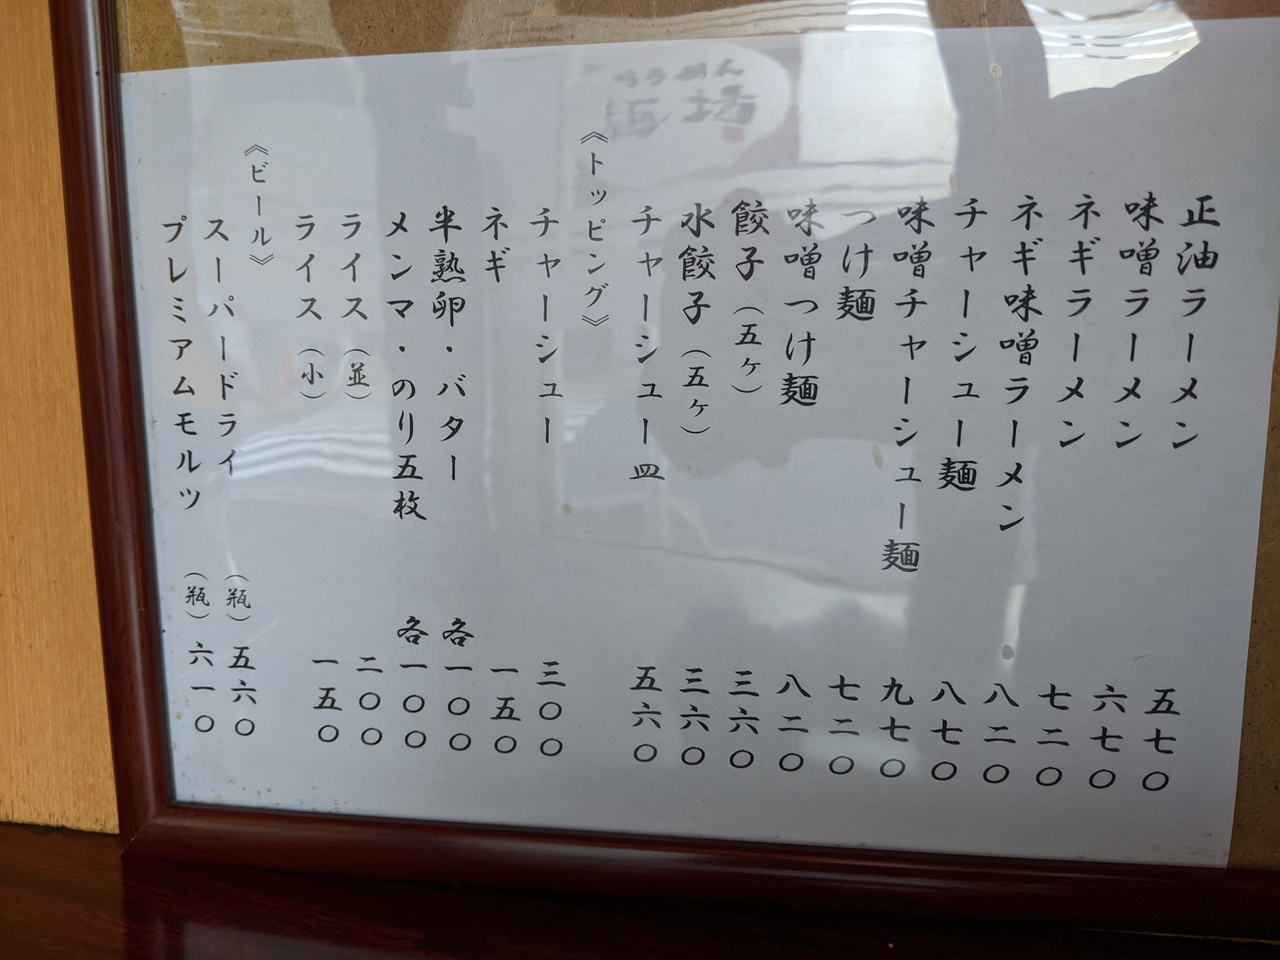 正油ラーメン 五七〇
味噌ラーメン 六七〇
ネギラーメン 七二〇
ネギ味噌ラーメン 八二〇
チャーシュー麺 八七〇
味噌チャーシュー麺 九七〇
つけ麺 七二〇
味噌つけ麺 八二〇
餃子（五ヶ） 三六〇
水餃子（五ヶ） 三六〇
チャーシュー皿 五六〇
《トッピング》
チャーシュー 三〇〇
ネギ 一五〇
半熟卵・バター 各一〇〇
メンマ・のり五枚 各一〇〇
ライス（並） 二〇〇
ライス（小） 一五〇
《ビール》
スーパードライ（瓶） 五六〇
プレミアムモルツ（瓶） 六一〇